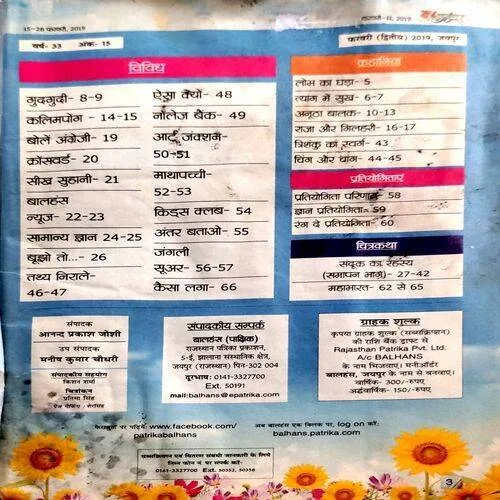 15-28 फरवरी, 2019
फरवरी-II, 2019
वर्ष- 33 अंक- 15
फरवरी (द्वितीय) 2019, जयपुर
विविध
गुदगुदी- 8-9
कलिमपोंग - 14-15
बोलें अंग्रेजी- 19
क्रॉसवर्ड- 20
सीख सुहानी- 21
बालहंस
न्यूज- 22-23
सामान्य ज्ञान 24-25
बूझो तो...- 26
तथ्य निराले-
46-47
ऐसा क्यों- 48
नॉलेज बैंक- 49
आर्ट जंक्शन-
50-51
माथापच्ची-
52-53
किड्स क्लब- 54
अंतर बताओ- 55
जंगली
सूअर- 56-57
कैसा लगा- 66
कहानियां
लोभ का घड़ा- 5
त्याग में सुख- 6-7
अनूठा बालक- 10-13
राजा और गिलहरी- 16-17
त्रिशंकु का स्वर्ग- 43
चिंग और चांग- 44-45
प्रतियोगिताएं
प्रतियोगिता परिणाम- 58
ज्ञान प्रतियोगिता- 59
रंग दे प्रतियोगिता- 60
चित्रकथा
संदूक का रहस्य
(समापन भाग)- 27-42
महाभारत- 62 से 65
संपादक
आनन्द प्रकाश जोशी
उप संपादक
मनीष कुमार चौधरी
संपादकीय सहयोग
किशन शर्मा
चित्रांकन
प्रतिमा सिंह
पृष्ठ सज्जा- शेरसिंह
संपादकीय सम्पर्क
बालहंस (पाक्षिक)
राजस्थान पत्रिका प्रकाशन,
5-ई, झालाना संस्थानिक क्षेत्र,
जयपुर (राजस्थान) पिन-302 004
दूरभाष: 0141-3327700
Ext. 50191
mail:balhans@epatrika.com
ग्राहक शुल्क
कृपया ग्राहक शुल्क (सब्सक्रिप्शन)
की राशि बैंक ड्राफ्ट से
Rajasthan Patrika Pvt. Ltd.
A/c BALHANS
के नाम भिजवाएं। मनीऑर्डर
बालहंस, जयपुर के नाम से बनवाएं।
वार्षिक- 300/-रुपए
अर्द्धवार्षिक- 150/-रुपए
फेसबुक पर पढ़िये: www.facebook.com/
patrikabalhans
अब बालहंस एक क्लिक पर, log on करें:
balhans.patrika.com
सब्सक्रिप्शन एवं वितरण सम्बंधी जानकारी के लिये
निम्न फोन नं पर संपर्क करें-
0141-3327700 Ext. 50352, 50358
3